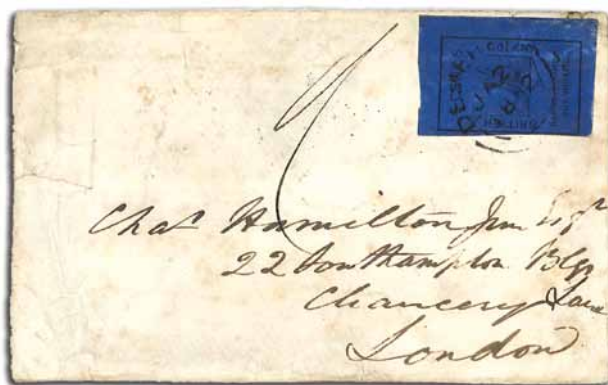 Chas Hamilton Jun Esqr
22 Southampton Blgs
Chancery Lane
London